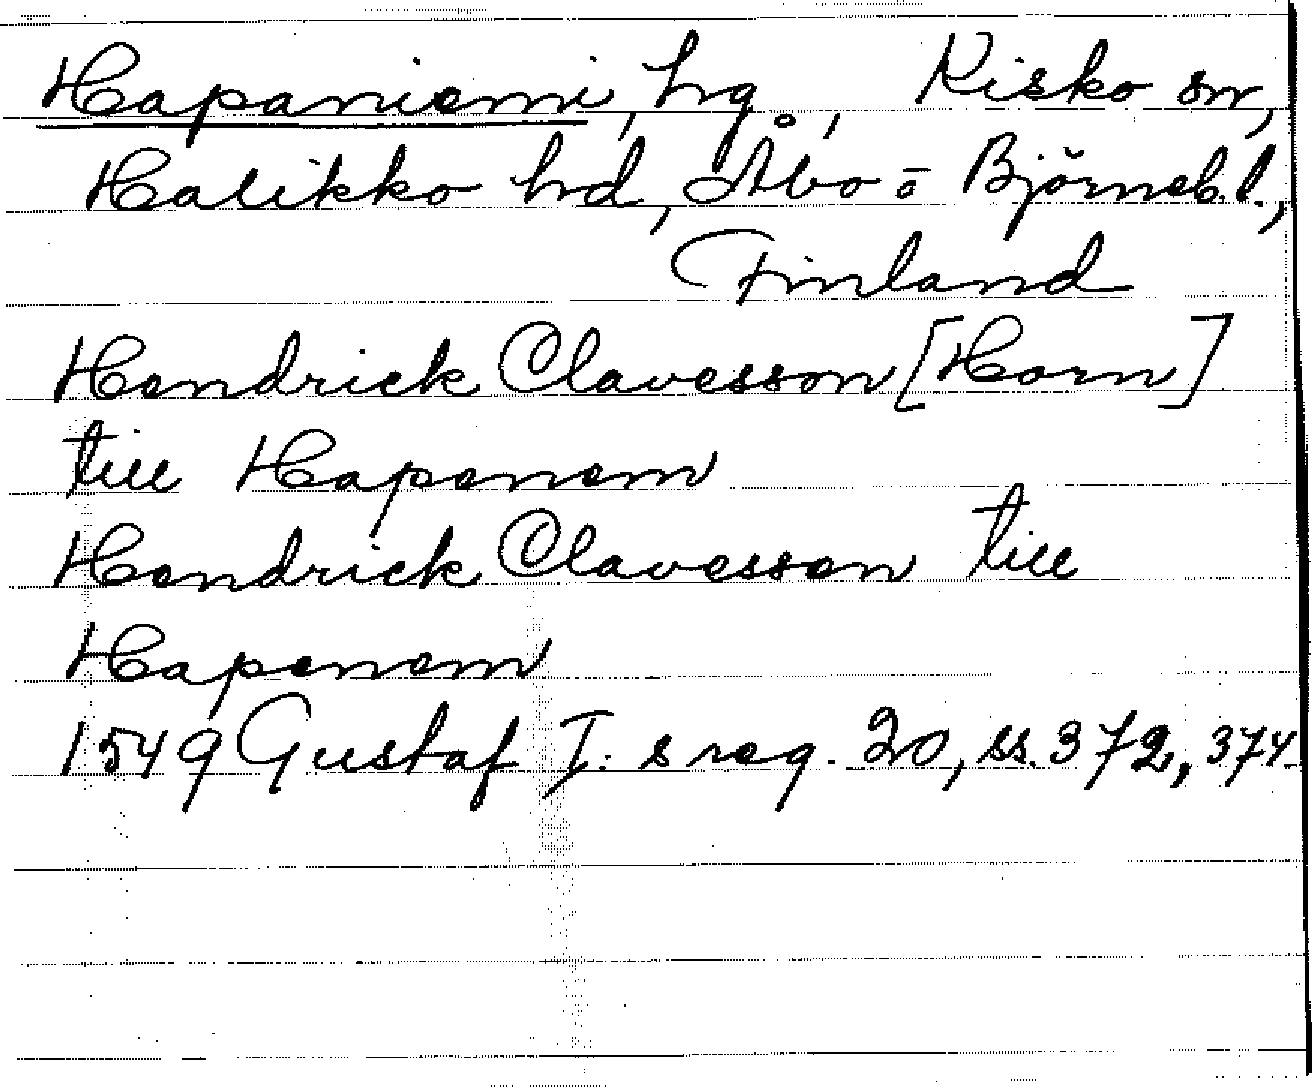 Hapaniemi, hg., Kisko sn,
Halikko hd, Åbo o Björneb.l.,
Finland
Hendrick Clavesson [Horn]
till Hapenem
Hendrick Clavesson till
Hapenem
1549 Gustaf I:s reg. 20, ss. 372, 374.